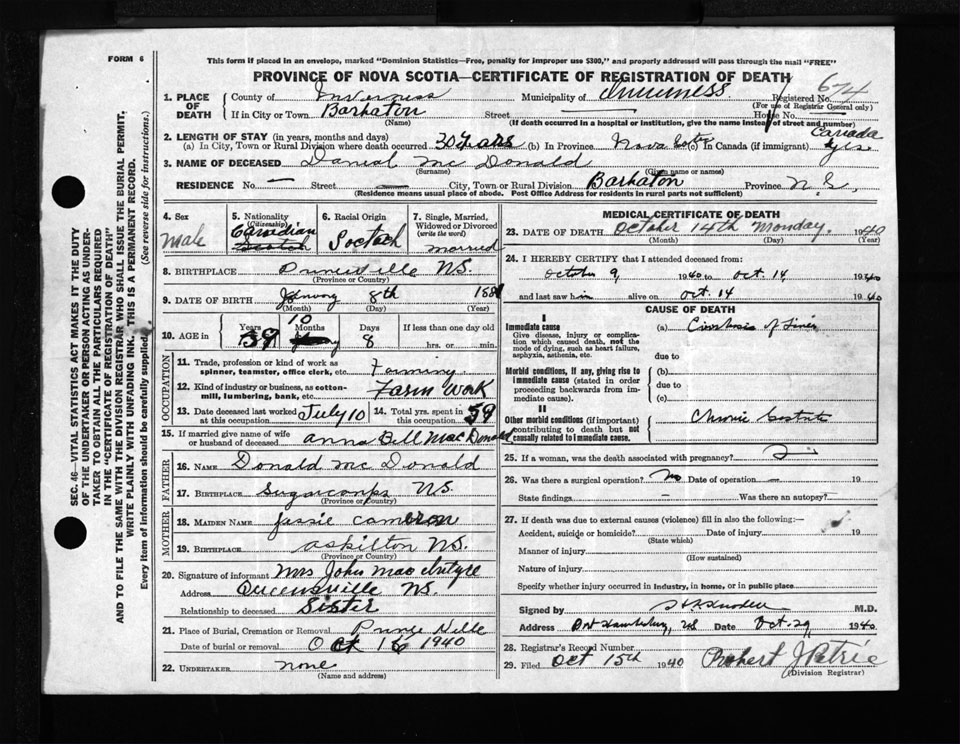 FORM 6
This form if placed in an envelope, marked "Dominion Statistics—Free, penalty for improper use $300," and properly addressed will pass through the mail "FREE"
PROVINCE OF NOVA SCOTIA—CERTIFICATE OF REGISTRATION OF DEATH
SEC. 46—VITAL STATISTICS ACT MAKES IT THE DUTY
OF THE UNDERTAKER OR PERSON ACTING AS UNDER-
TAKER TO OBTAIN ALL THE PARTICULARS REQUIRED
IN THE "CERTIFICATE OF REGISTRATION OF DEATH"
AND TO FILE THE SAME WITH THE DIVISION REGISTRAR WHO SHALL ISSUE THE BURIAL PERMIT.
WRITE PLAINLY WITH UNFADING INK. THIS IS A PERMANENT RECORD.
Every item of information should be carefully supplied. (See reverse side for instructions.)
1. PLACE OF DEATH County of Inverness Municipality of Inverness Registered No. 674
(For use of Registrar General only)
If in City or Town Barhaton Street — House No.
(Name) (If death occurred in a hospital or institution, give the name instead of street and number)
2. LENGTH OF STAY (in years, months and days) Canada
(a) In City, Town or Rural Division where death occurred 30 years (b) In Province Nova Scotia (c) In Canada (if immigrant) yes
3. NAME OF DECEASED Danial Mc Donald
(Surname) (Given name or names)
RESIDENCE No. — Street — City, Town or Rural Division Barhaton Province N.S.
(Residence means usual place of abode. Post Office Address for residents in rural parts not sufficient)
4. Sex Male
5. Nationality (Citizenship) Canadian Scotch
6. Racial Origin Soctach
7. Single, Married, Widowed or Divorced (write the word) married
8. BIRTHPLACE Princeville NS.
(Province or Country)
9. DATE OF BIRTH January 8th 1881
(Month) (Day) (Year)
10. AGE in Years 59 Months 10 Days 8 If less than one day hrs. or min.
OCCUPATION
11. Trade, profession or kind of work as spinner, teamster, office clerk, etc. Farming
12. Kind of industry or business, as cotton-mill, lumbering, bank, etc. Farm Work
13. Date deceased last worked at this occupation July 10 14. Total yrs. spent in this occupation 59
15. If married give name of wife or husband of deceased Anna Bell Mac Donald
FATHER
16. NAME Donald Mc Donald
17. BIRTHPLACE NS.
(Province or Country)
MOTHER
18. MAIDEN NAME Jassie Cameron
19. BIRTHPLACE Askilton NS.
(Province or Country)
20. Signature of informant Mrs John Mac Intyre
Address Queensville NS.
Relationship to deceased Sister
21. Place of Burial, Cremation or Removal
Date of burial or removal Oct 16 1940
22. UNDERTAKER none
(Name and address)
MEDICAL CERTIFICATE OF DEATH
23. DATE OF DEATH October 14th Monday. 1940
(Month) (Day) (Year)
24. I HEREBY CERTIFY that I attended deceased from:
October 9, 1940 to Oct. 14 1940
and last saw him alive on Oct. 14 1940
CAUSE OF DEATH
I
Immediate cause
Give disease, injury or complication which caused death, not the mode of dying, such as heart failure, asphyxia, asthenia, etc.
(a) Cirrhosis of Liver
due to
Morbid conditions, if any, giving rise to immediate cause (stated in order proceeding backwards from immediate cause).
(b)
due to
(c)
II
Other morbid conditions (if important) contributing to death but not causally related to immediate cause.
Chronic
25. If a woman, was the death associated with pregnancy?
26. Was there a surgical operation? No Date of operation — 19
State findings — Was there an autopsy?
27. If death was due to external causes (violence) fill in also the following:—
Accident, suicide or homicide? Date of injury 19
(State which)
Manner of injury
(How sustained)
Nature of injury
Specify whether injury occurred in industry, in home, or in public place
Signed by M.D.
Address Pt Hawkesbury, NS Date Oct. 29 1940
28. Registrar's Record Number
29. Filed Oct 15th 1940 Robert J Petrie
(Division Registrar)